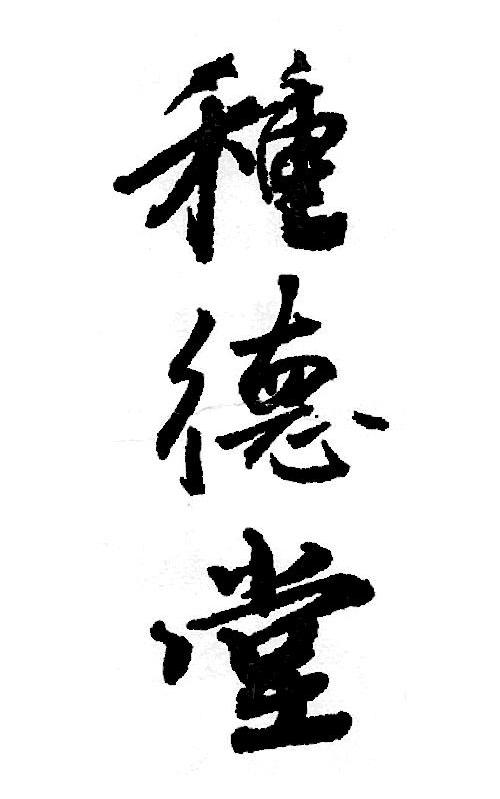 種德堂